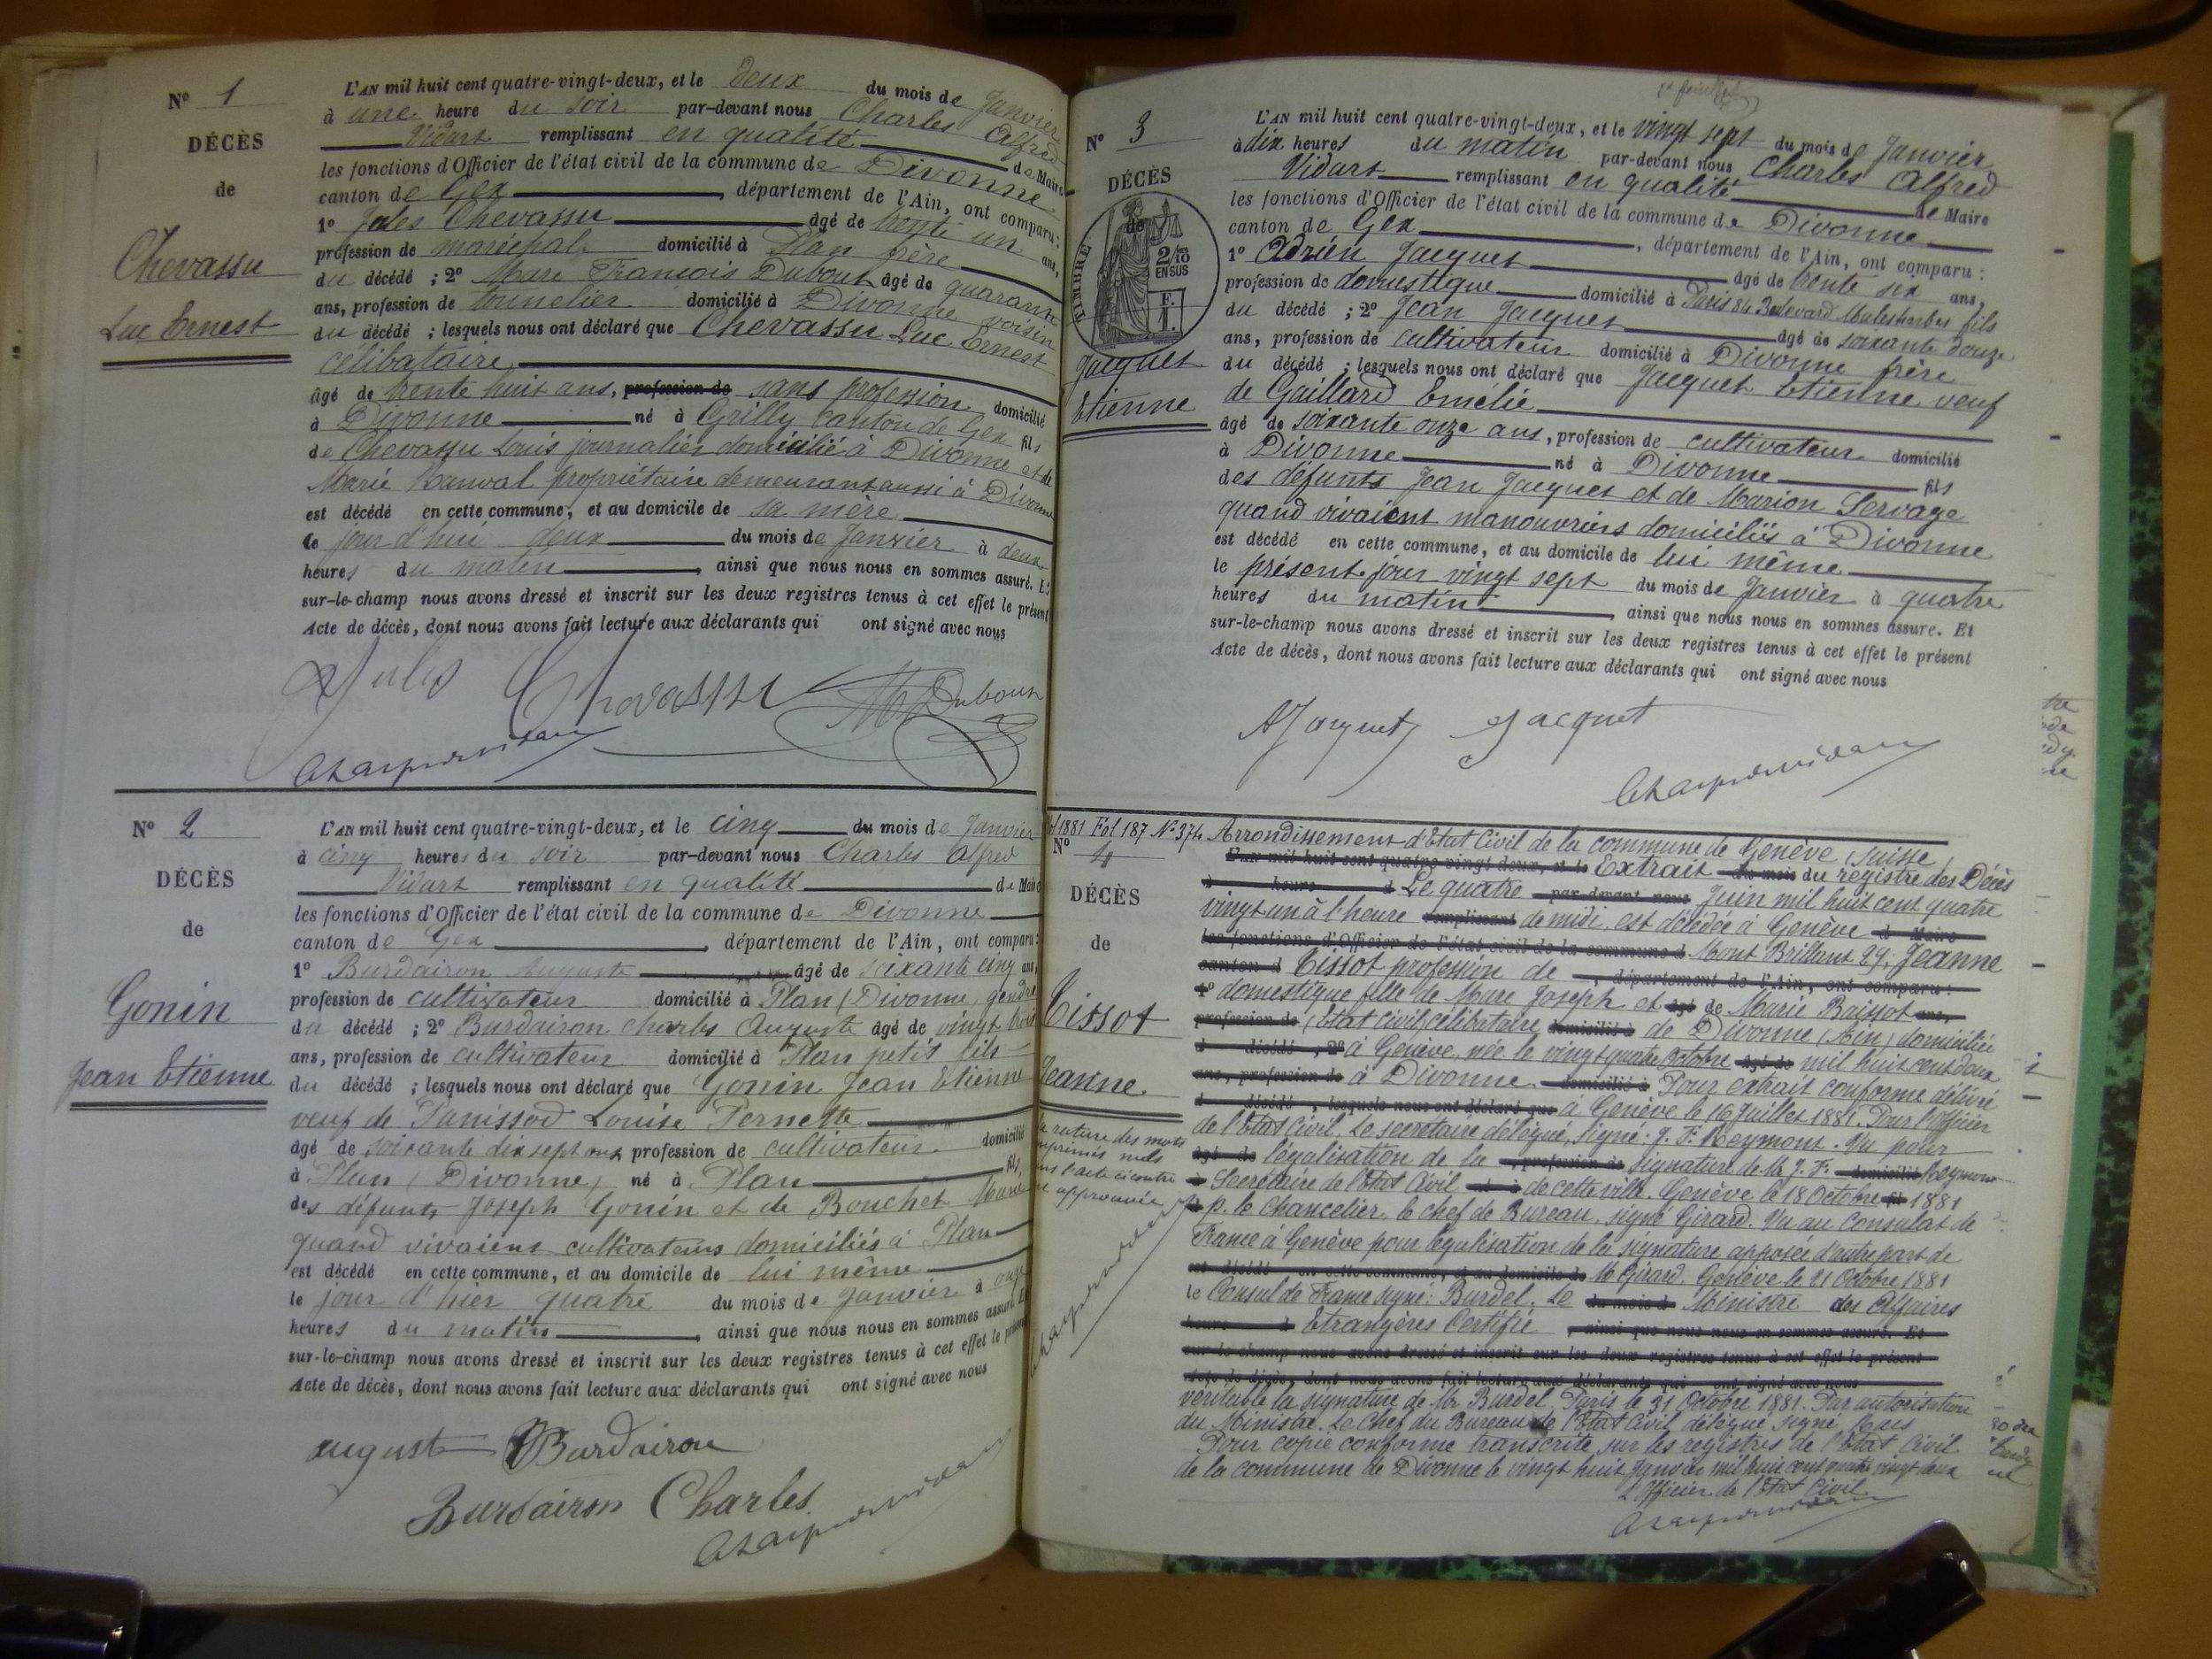 N° 1
DÉCÈS
de
Chevassu
Luc Ernest
L'AN mil huit cent quatre-vingt-deux, et le deux du mois de Janvier
à une heure du soir par-devant nous Charles Alfred
Vidart remplissant en qualité de Maire
les fonctions d'Officier de l'état civil de la commune de Divonne
canton de Gex, département de l'Ain, ont comparu:
1° Jules Chevassu âgé de trente un ans,
profession de maréchal domicilié à Plan frère
du décédé ; 2° Marc François Dubout âgé de quarante
ans, profession de tonnelier domicilié à Divonne voisin
du décédé ; lesquels nous ont déclaré que Chevassu Luc Ernest
célibataire
âgé de trente huit ans, profession de sans profession domicilié
à Divonne né à Grilly canton de Gex fils
de Chevassu Louis journalier domicilié à Divonne et de
Marie propriétaire demeurant aussi à Divonne
est décédé en cette commune, et au domicile de sa mère
le jour d'hui deux du mois de Janvier à deux
heures du matin, ainsi que nous nous en sommes assuré. Et
sur-le-champ nous avons dressé et inscrit sur les deux registres tenus à cet effet le présent
Acte de décès, dont nous avons fait lecture aux déclarants qui ont signé avec nous
Jules Chevassu M Dubout
N° 2
DÉCÈS
de
Gonin
Jean Etienne
L'AN mil huit cent quatre-vingt-deux, et le cinq du mois de Janvier
à cinq heures du soir par-devant nous Charles Alfred
Vidart remplissant en qualité de Maire
les fonctions d'Officier de l'état civil de la commune de Divonne
canton de Gex, département de l'Ain, ont comparu:
1° Burdairon Auguste âgé de soixante cinq ans,
profession de cultivateur domicilié à Plan (Divonne) gendre
du décédé ; 2° Burdairon Charles Auguste âgé de vingt trois
ans, profession de cultivateur domicilié à Plan petit fils
du décédé ; lesquels nous ont déclaré que Gonin Jean Etienne
veuf de Panissod Louise Pernette
âgé de soixante dix sept ans profession de cultivateur domicilié
à Plan (Divonne) né à Plan fils
des défunts Joseph Gonin et de Bouchet Marie
quand vivaient cultivateurs domiciliés à Plan
est décédé en cette commune, et au domicile de lui même
le jour d'hier quatre du mois de Janvier à onze
heures du matin, ainsi que nous nous en sommes assuré. Et
sur-le-champ nous avons dressé et inscrit sur les deux registres tenus à cet effet le présent
Acte de décès, dont nous avons fait lecture aux déclarants qui ont signé avec nous
august Burdairon
Burdairon Charles
N° 3
DÉCÈS
de
TIMBRE
2/10
EN SUS
Jacquet
Etienne
L'AN mil huit cent quatre-vingt-deux, et le vingt sept du mois de Janvier
à dix heures du matin par-devant nous Charles Alfred
Vidart remplissant en qualité de Maire
les fonctions d'Officier de l'état civil de la commune de Divonne
canton de Gex, département de l'Ain, ont comparu :
1° Adrien Jacquet âgé de trente six ans,
profession de domestique domicilié à Paris 84 Boulevard Malesherbes fils
du décédé ; 2° Jean Jacquet âgé de soixante douze
ans, profession de cultivateur domicilié à Divonne frère
du décédé ; lesquels nous ont déclaré que Jacquet Etienne veuf
de Gaillard Emélie
âgé de soixante onze ans, profession de cultivateur domicilié
à Divonne né à Divonne fils
des défunts Jean Jacquet et de Marion Servage
quand vivaient manouvriers domiciliés à Divonne
est décédé en cette commune, et au domicile de lui même
le présent jour vingt sept du mois de Janvier à quatre
heures du matin, ainsi que nous nous en sommes assuré. Et
sur-le-champ nous avons dressé et inscrit sur les deux registres tenus à cet effet le présent
Acte de décès, dont nous avons fait lecture aux déclarants qui ont signé avec nous
A Jacquet J Jacquet
1881 Fol 187 N° 374
N° 4
DÉCÈS
de
Tissot
Jeanne.
la rature des mots
imprimés nuls
dans l'acte ci contre
approuvée
Arrondissement d'Etat Civil de la commune de Genève (Suisse)
L'an mil huit cent quatre vingt deux, et le Extrait du mois du registre des Décès
à heure d Le quatre par devant nous Juin mil huit cent quatre
vingt un à l'heure remplissant de midi est décédée à Genève d Maire
les fonctions d'Officier de l'état civil de la commune d Mont Brillant 29, Jeanne
canton d Tissot profession de , département de l'Ain, ont comparu :
1° domestique fille de Marc Joseph et âgé de Marie Baissot ans,
profession de (Etat civil) célibataire domicilié à de Divonne (Ain) domiciliée
d décédé ; 2° à Genève, née le vingt quatre Octobre âgé de mil huit cent deux
ans, profession de à Divonne. domicilié à Pour extrait conforme délivré
d décédé ; lesquels nous ont déclaré que à Genève le 16 Juillet 1881. Pour l'Officier
de l'Etat Civil. Le secrétaire délégué, signé : J. F. Reymont. Vu pour
âgé de légalisation de la profession de signature de Mr J. F. domicilié Reymont
à Secrétaire de l'Etat Civil né à de cette ville. Genève le 18 Octobre fil 1881
p. le Chancelier. le chef de Bureau, signé Girard. Vu au Consulat de
France à Genève pour légalisation de la signature apposée d'autre part de
est décédé en cette commune, et au domicile de Mr Girard. Genève le 21 Octobre 1881
le Consul de France signé : Burdel. Le du mois d Ministre des Affaires
heure d Etrangères Certifie , ainsi que nous nous en sommes assuré. Et
sur-le-champ nous avons dressé et inscrit sur les deux registres tenus à cet effet le présent
Acte de décès, dont nous avons fait lecture aux déclarants qui ont signé avec nous
véritable la signature de Mr Burdel. Paris le 31 Octobre 1881. Par autorisation
du Ministre. Le Chef du Bureau de l'Etat Civil délégué signé
Pour copie conforme transcrite sur les registres de l'Etat Civil
de la commune de Divonne le vingt huit Janvier mil huit cent quatre vingt deux
L'Officier de l'Etat Civil